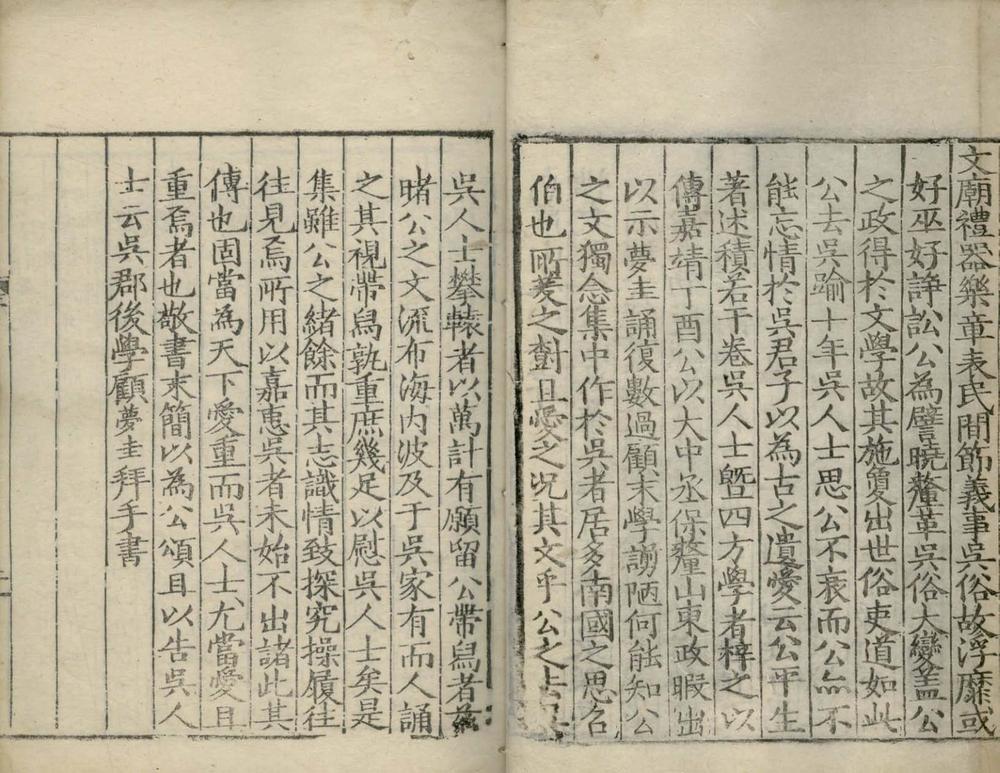 文廟禮器樂章表民間節義事吳俗故浮靡或
好巫好諍訟公為譬曉釐革吳俗大變蓋公
之政得於文學故其施夐出世俗吏道如此
公去吳踰十年吳人士思公不衰而公亦不
能忘情於吳君子以為古之遺愛云公平生
著述積若干卷吳人士曁四方學者梓之以
傳嘉靖丁酉公以大中丞保釐山東政暇出
以示夢圭誦復數過顧末學謭陋何能知公
之文獨念集中作於吳者居多南國之思召
伯也所茇之樹且愛之况其文乎公之去吳
吳人士攀轅者以萬計有願留公帶舄者茲
睹公之文流布海內波及于吳家有而人誦
之其視帶舄孰重庶幾足以慰吳人士矣是
集雖公之緒餘而其志識情致探究操履往
往見焉所用以嘉惠吳者未始不出諸此其
傳也固當為天下愛重而吳人士尤當愛且
重焉者也敬書末簡以為公頌且以告吳人
士云吳郡後學顧夢圭拜手書